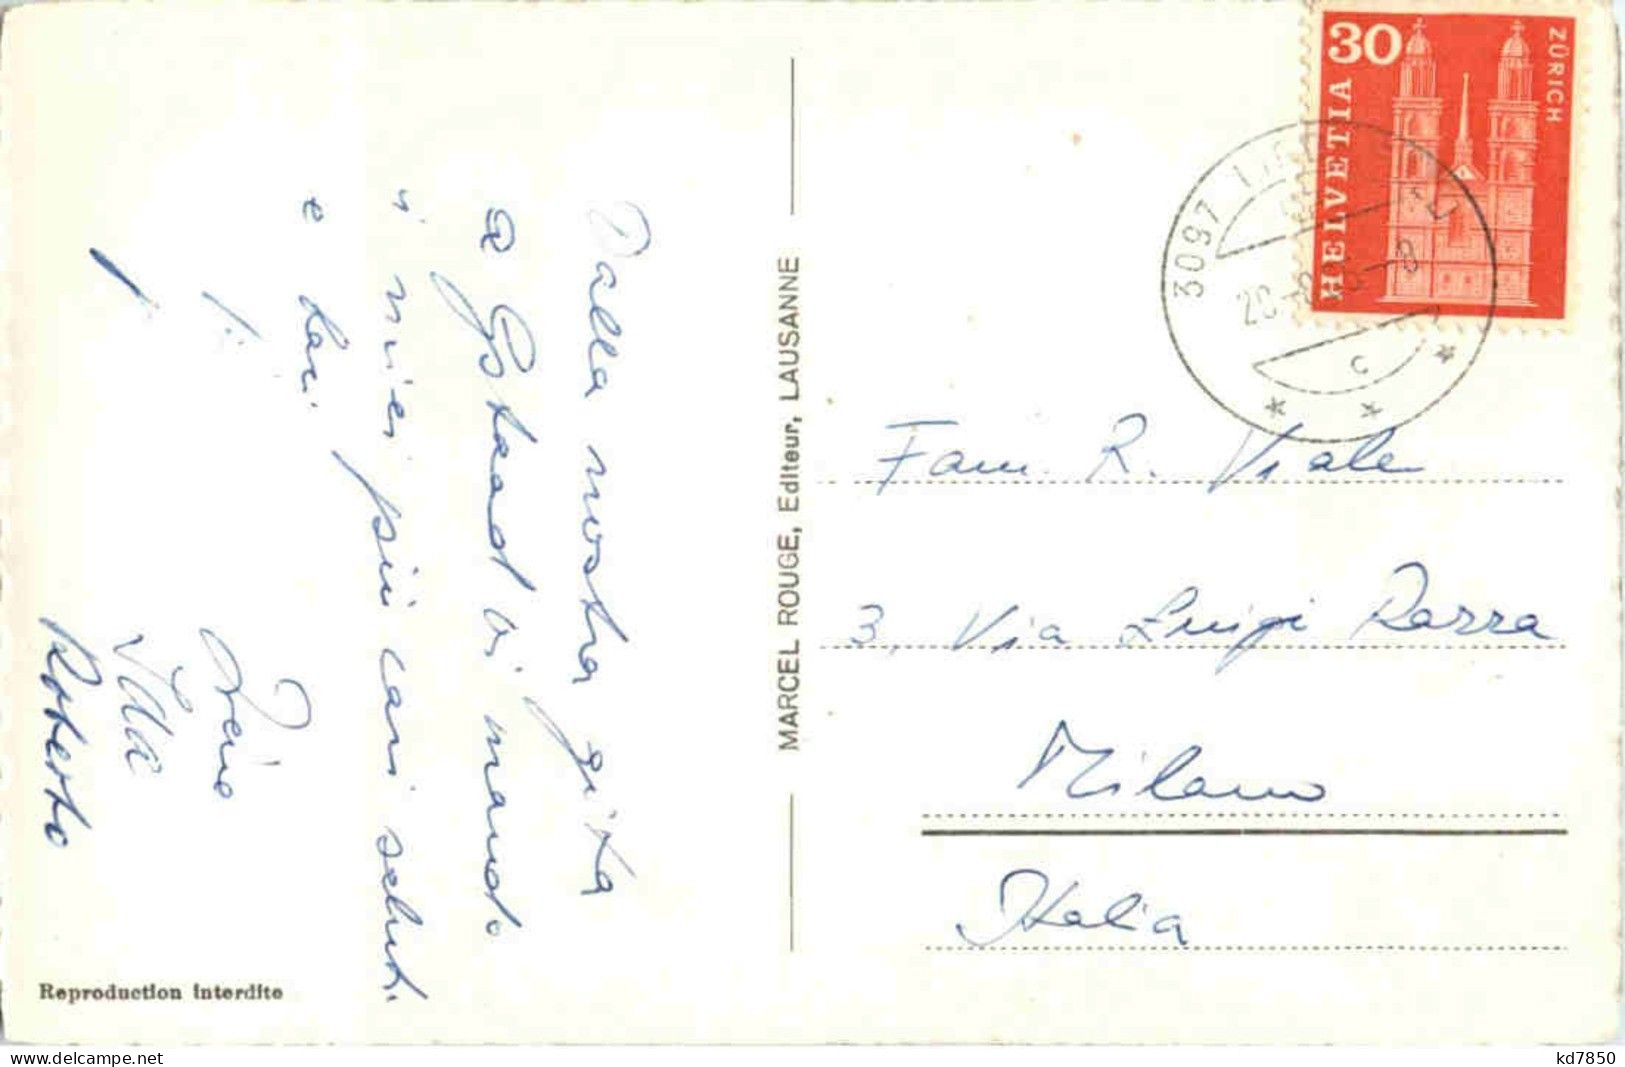 Dalla nostra gita
a Gstaad vi mando
i miei più cari saluti
e baci.
Irene
Roberto
Reproduction interdite
MARCEL ROUGE, Editeur, LAUSANNE
30
HELVETIA
ZÜRICH
3097
Fam. R. Viale
3, Via Luigi Razza
Milano
Italia
kd7850
www.delcampe.net